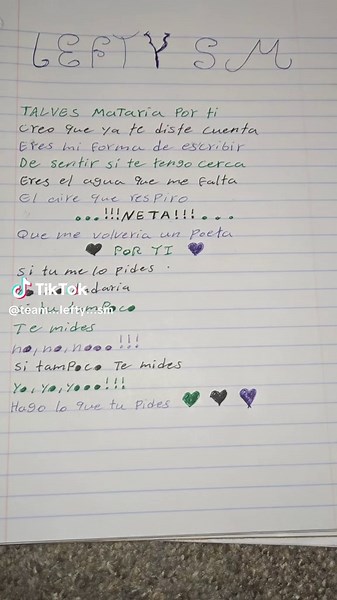 LEFTY S M
TALVES MaTaRia PoR ti
Creo que ya te diste cuenta
Eres mi forma de escribir
De sentir si te tengo cerca
Eres el agua que me falta
El aire que respiro
...!!!NETA!!!...
Que me volveria un Poeta
POR TI
si tu me lo pides.
TikTok
tamPoco
@team..lefty..sm
Te mides
no,no,nooo!!!
si tamPoco Te mides
Yo,yo,yooo!!!
Hago lo que tu Pides